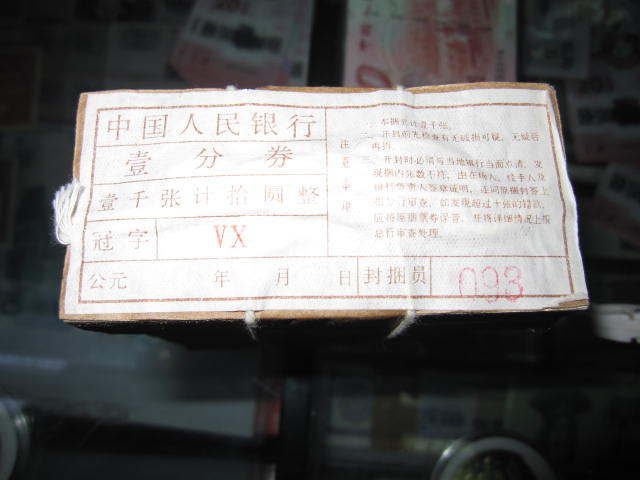 中国人民银行
壹分券
壹千张计拾圆整
冠字 VX
公元 年 月 日 封捆员 093
注意事项
一、本捆共计壹千张。
二、开封前先检查有无破损可疑，无疑后
再拆。
三、开封时必须与当地银行当面点清，发
现捆内张数不符，由在场人、经手人及
银行负责人签章证明，连同原捆封签上
报分行审查，如发现超过十张的错款，
应将原捆票券保管，并将详细情况上报
总行审查处理。